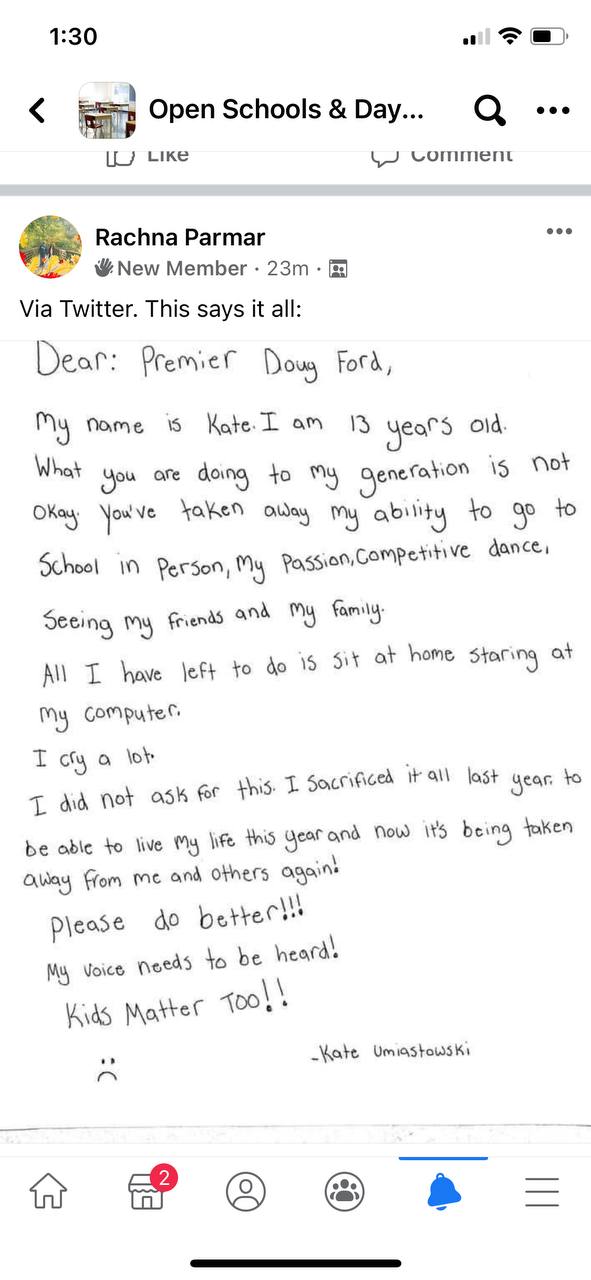 1:30
Open Schools & Day...
Like
Comment
Rachna Parmar
New Member · 23m ·
Via Twitter. This says it all:
Dear: Premier Doug Ford,
My name is Kate. I am 13 years old.
What you are doing to my generation is not
okay. You've taken away my ability to go to
School in Person, My Passion, Competitive dance,
Seeing my friends and my family.
All I have left to do is sit at home staring at
my computer.
I cry a lot.
I did not ask for this. I Sacrificed it all last year to
be able to live my life this year and now it's being taken
away from me and others again!
Please do better!!!
My voice needs to be heard!
Kids Matter Too!!
-Kate Umiastowski
2